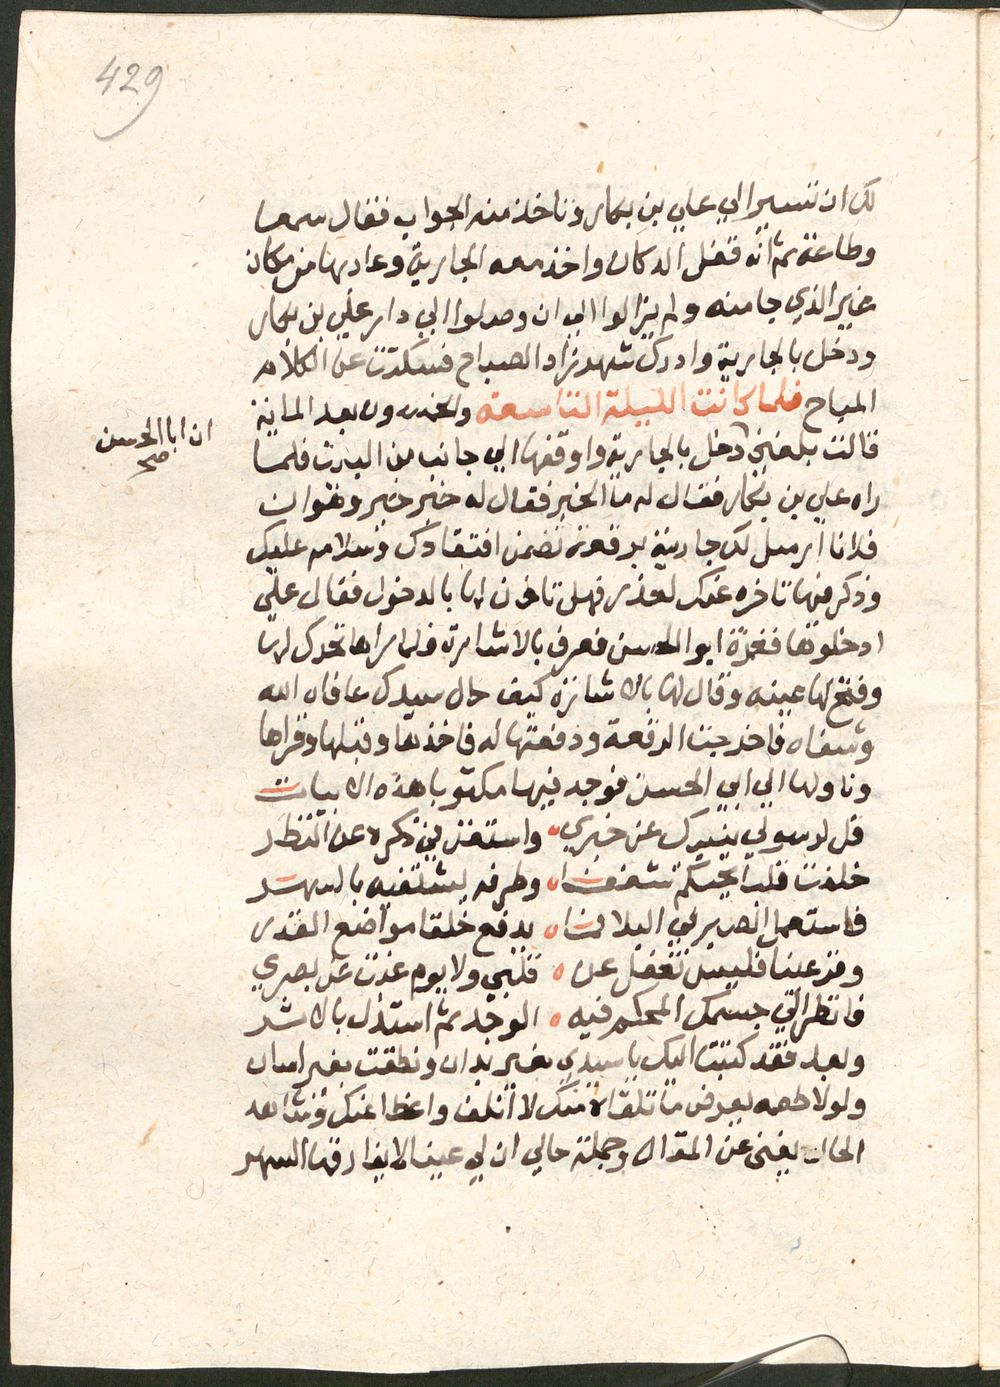 429
لك ان تسير الي علي بن بكار وتاخذ منه الجواب فقال سمعا
وطاعة ثم انه قفل الدكان واخذ معه الجارية وعاد بها من مكان
غير الذي جا منه ولم يزالوا الي ان وصلوا الي دار علي بن بكار
ودخل بالجارية وادرك شهرزاد الصباح فسكتت عن الكلام
المباح فلما كانت الليلة التاسعة والعشرون بعد الماية
قالت بلغني دخل بالجارية واوقفها الي جانب من البيت فلما
ان ابا الحسن
صح
راه علي بن بكار فقال له ما الخبر فقال له خير خير وهو ان
فلانا ارسل لك جارية برقعة تضمن افتقادك وسلامه عليك
وذكر فيها تاخره عنك لعذر فهل تاذن لها بالدخول فقال علي
ادخلوها فغمزه ابو الحسن فعرف بالاشارة فلما راها تحرك لها
وفتح لها عينه وقال لها بالاشارة كيف حال سيدك عافاه الله
وشفاه فاخرجت الرقعة ودفعتها له فاخذها وقبلها وقراها
وناولها الي ابي الحسن فوجد فيها مكتوبا هذه الابيات
قل لرسولي ينبيك عن خبري واستغن بي ذكره عن النظر
خلفت قلبا بحبكم شغفا وطرفه بالسهر
فاستعمل الصبر في البلا فما يدفع خلقا مواضع القدر
وقر عينا فليس تغفل عن قلبي ولا يوم غبت عن بصري
فانظر الي جسمك المحكم فيه الوجد ثم استدل بالاشر
وبعد فقد كتبت اليك يا سيدي بغير بنان ونطقت بغير لسان
ولولا طعمه بعرض ما تلقاه منك لا اتلف واعظا عنك وشاهد
الحال يغني عن المقال وجملة حالي ان لي عينا لا يفارقها السهر